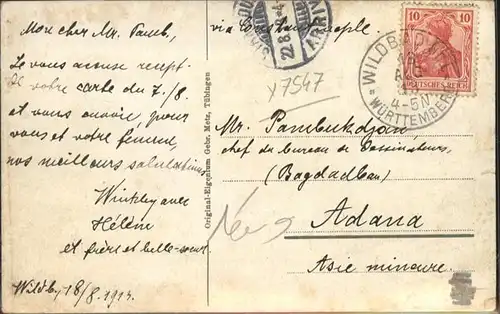 Mon cher Mr. Pamb,
Je vous accuse recept.
d votre carte du 7/8.
et vous envoie, pour
vous et votre femme,
nos meilleurs salutations
Winkley avec
Hélène
et frère et belle-sœur.
Wildb, 18/8. 1913.
Original-Eigentum Gebr. Metz, Tübingen
via Constantinople
22.8.
x7547
10 10
DEUTSCHES REICH
WILDBAD
AUG
4-5N
WÜRTTEMBERG
Mr. Pambukdjian
chef de bureau de Dessinateurs,
(Bagdadbau)
Adana
Asie mineure.